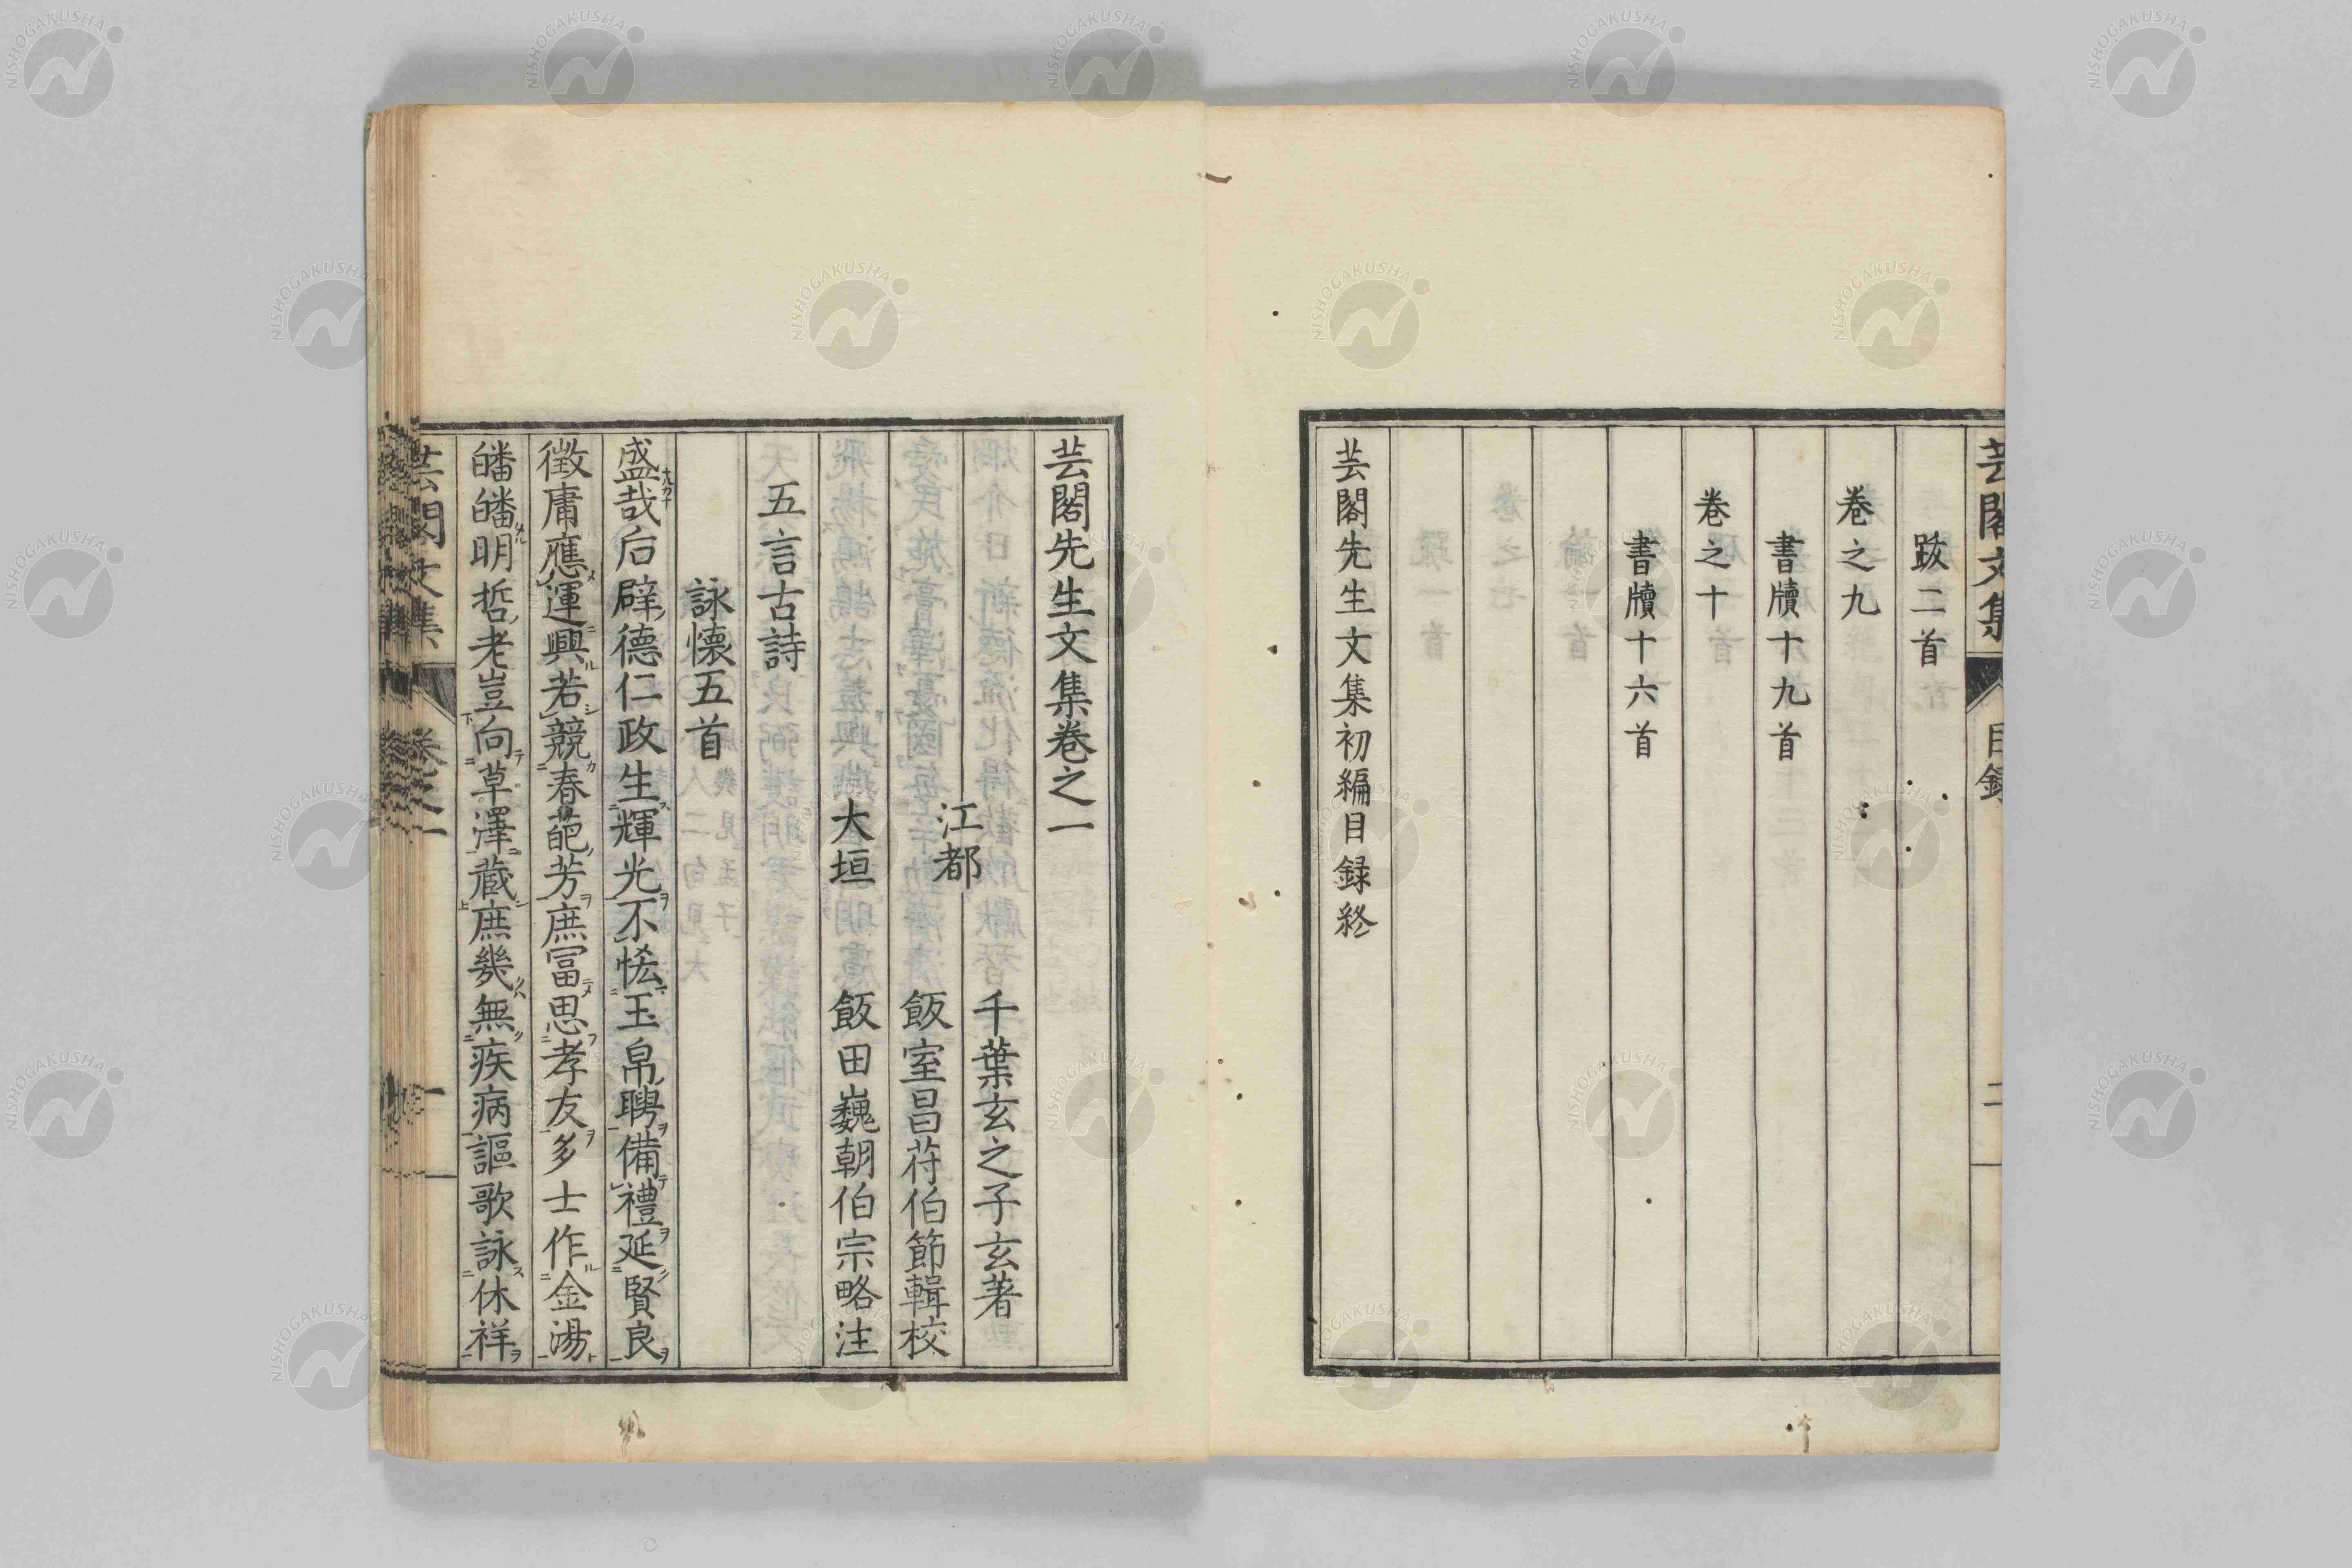 芸閣文集
目録
二
跋二首
卷之九
書牘十九首
卷之十
書牘十六首
芸閣先生文集初編目録終
芸閣先生文集卷之一
千葉玄之子玄著
江都
飯室昌苻伯節輯校
大垣
飯田巍朝伯宗略注
五言古詩
詠懷五首
盛哉后辟德仁政生輝光不恡玉帛聘備禮延賢良
徵庸應運興若競春葩芳庶冨思孝友多士作金湯
皤皤明哲老豈向草澤藏庶幾無疾病謳歌詠休祥
芸閣文集
卷之一
一
NISHOGAKUSHA